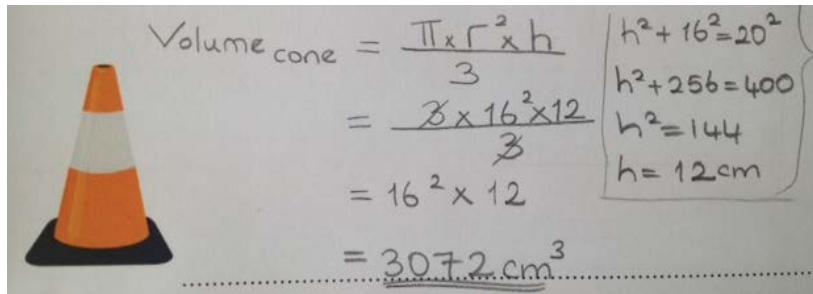 Volume cone = π x r² x h / 3
= 3 x 16² x 12 / 3
= 16² x 12
= 3072 cm³
h² + 16² = 20²
h² + 256 = 400
h² = 144
h = 12 cm